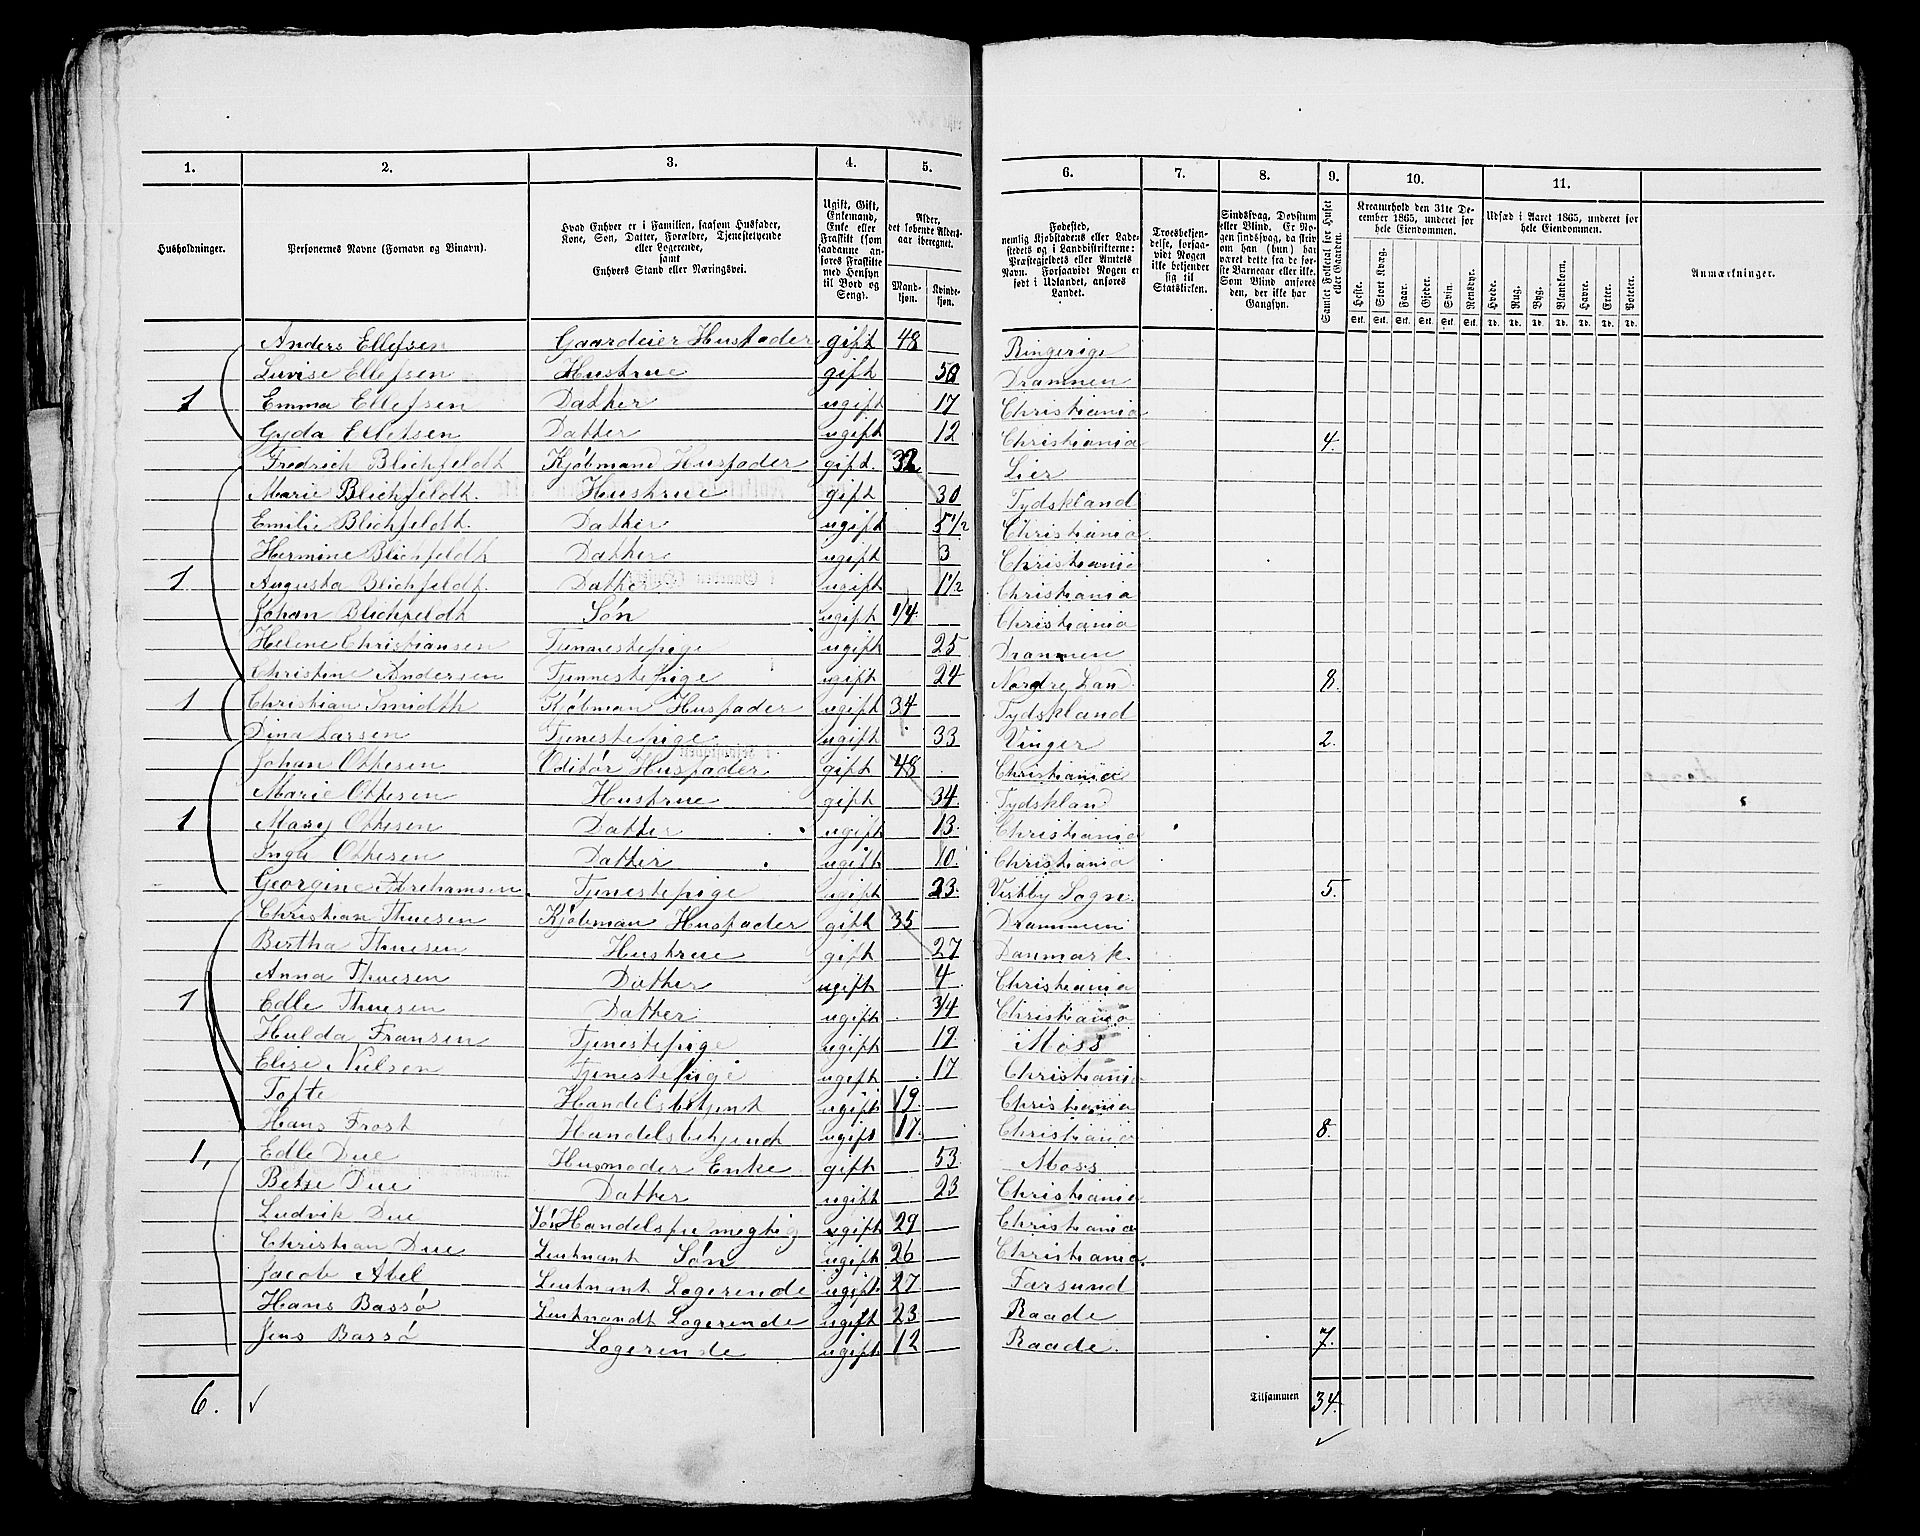 1. 2. 3. 4. 5. 6. 7. 8. 9. 10. 11.
Husholdninger. Personernes Navne (Fornavn og Binavn). Hvad Enhver er i Familien, saasom Husfader, Kone, Søn, Datter, Forældre, Tjenestetyende eller Logerende, samt Enhvers Stand eller Næringsvei. Ugift, Gift, Enkemand, Enke eller Fraskilt (som saadanne anføres Fraskilte med Hensyn til Bord og Seng). Alder, det løbende Aldersaar iberegnet. Mandkjøn. Kvindekjøn. Fødested, nemlig Kjøbstadens eller Ladestedets og i Landdistrikterne: Præstegjeldets eller Amtets Navn. Forsaavidt Nogen er født i Udlandet, anføres Landet. Troesbekjendelse, forsaavidt Nogen ikke bekjender sig til Statskirken. Sindssvag, Døvstum eller Blind. Er Nogen sindssvag, da skriv om han (hun) har været dette fra de første Barneaar eller ikke. Som Blind anføres den, der ikke har Gangsyn. Samlet Folketal for Huset eller Gaarden. Kreaturhold den 31te December 1865, underet for hele Eiendommen. Heste. Stort Kvæg. Faar. Gjeder. Svin. Rensdyr. Udsæd i Aaret 1865, underet for hele Eiendommen. Hvede. Rug. Byg. Blandkorn. Havre. Erter. Poteter. Anmærkninger.
Stk. Stk. Stk. Stk. Stk. Stk. Td. Td. Td. Td. Td. Td. Td.
Anders Ellefsen Gaardeier Husfader gift 48 Ringerige
Lovise Ellefsen Hustrue gift 50 Drammen
1 Emma Ellefsen Datter ugift 17 Christiania
Gyda Ellefsen Datter ugift 12 Christiania 4.
Fredrich Blichfeldth Kjøbmand Husfader gift. 32 Lier
Marie Blichfeldth. Hustrue gift 30 Tydskland
Emilie Blichfeldth. Datter ugift 5 1/2 Christiania
Hermine Blichfeldth Datter ugift 3 Christiania
1 Augusta Blichfeldth. Datter ugift 1 1/2 Christiania
Johan Blichfeldth Søn ugift 1/4 Christiania
Helene Christiansen Tjennestepige ugift 25 Drammen
Christine Andersen Tjennestepige ugift 24 Nordre Land. 8.
1 Christian Smidth Kjøbman Husfader ugift 34 Tydskland
Dina Larsen Tjenestepige ugift 33 Vinger 2.
Johan Ottesen Oditør Husfader gift 48 Christiania
Marie Ottesen Hustrue gift 34 Tydskland
1 Mary Ottesen Datter ugift 13. Christiania
Inga Ottesen Datter ugift 10. Christiania
Georgine Abrahamsen Tjenestepige ugift 23. Vestby Sogn. 5.
Christian Thuesen Kjøbman Husfader gift 35 Drammen
Birtha Thuesen Hustrue gift 27 Danmark.
Anna Thuesen Datter ugift 4 Christiania
1 Edle Thuesen Datter ugift 3/4 Christiania
Hulda Fransen Tjenestepige ugift 19 Moss
Elise Nielsen Tjenestepige ugift 17 Christiania
Tofte Handelsbetjent ugift 19. Christiania
Hans Frost Handelsbetjent ugift 17. Christiania 8.
1, Edle Due Husmoder Enke gift 53. Moss
Betsi Due Datter ugift 23 Christiania
Ludvik Due Søn Handelsfumegtig ugift 29 Christiania
Christian Due Leutnant Søn ugift 26 Christiania.
Jacob Abel Leutnant Logerende ugift 27 Farsund
Hans Bassø Leutnandt Logerende ugift 23 Raade
Jens Bassø Logerende ugift 12 Raade. 7.
6. Tilsammen 34.